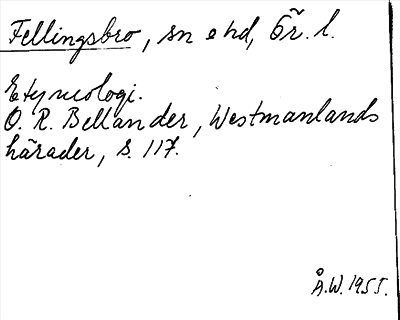 Fellingsbro, sn o hd, Ör. l.
Etymologi.
O. R. Bellander, Westmanlands
härader, s. 117.
Å.W. 1955.